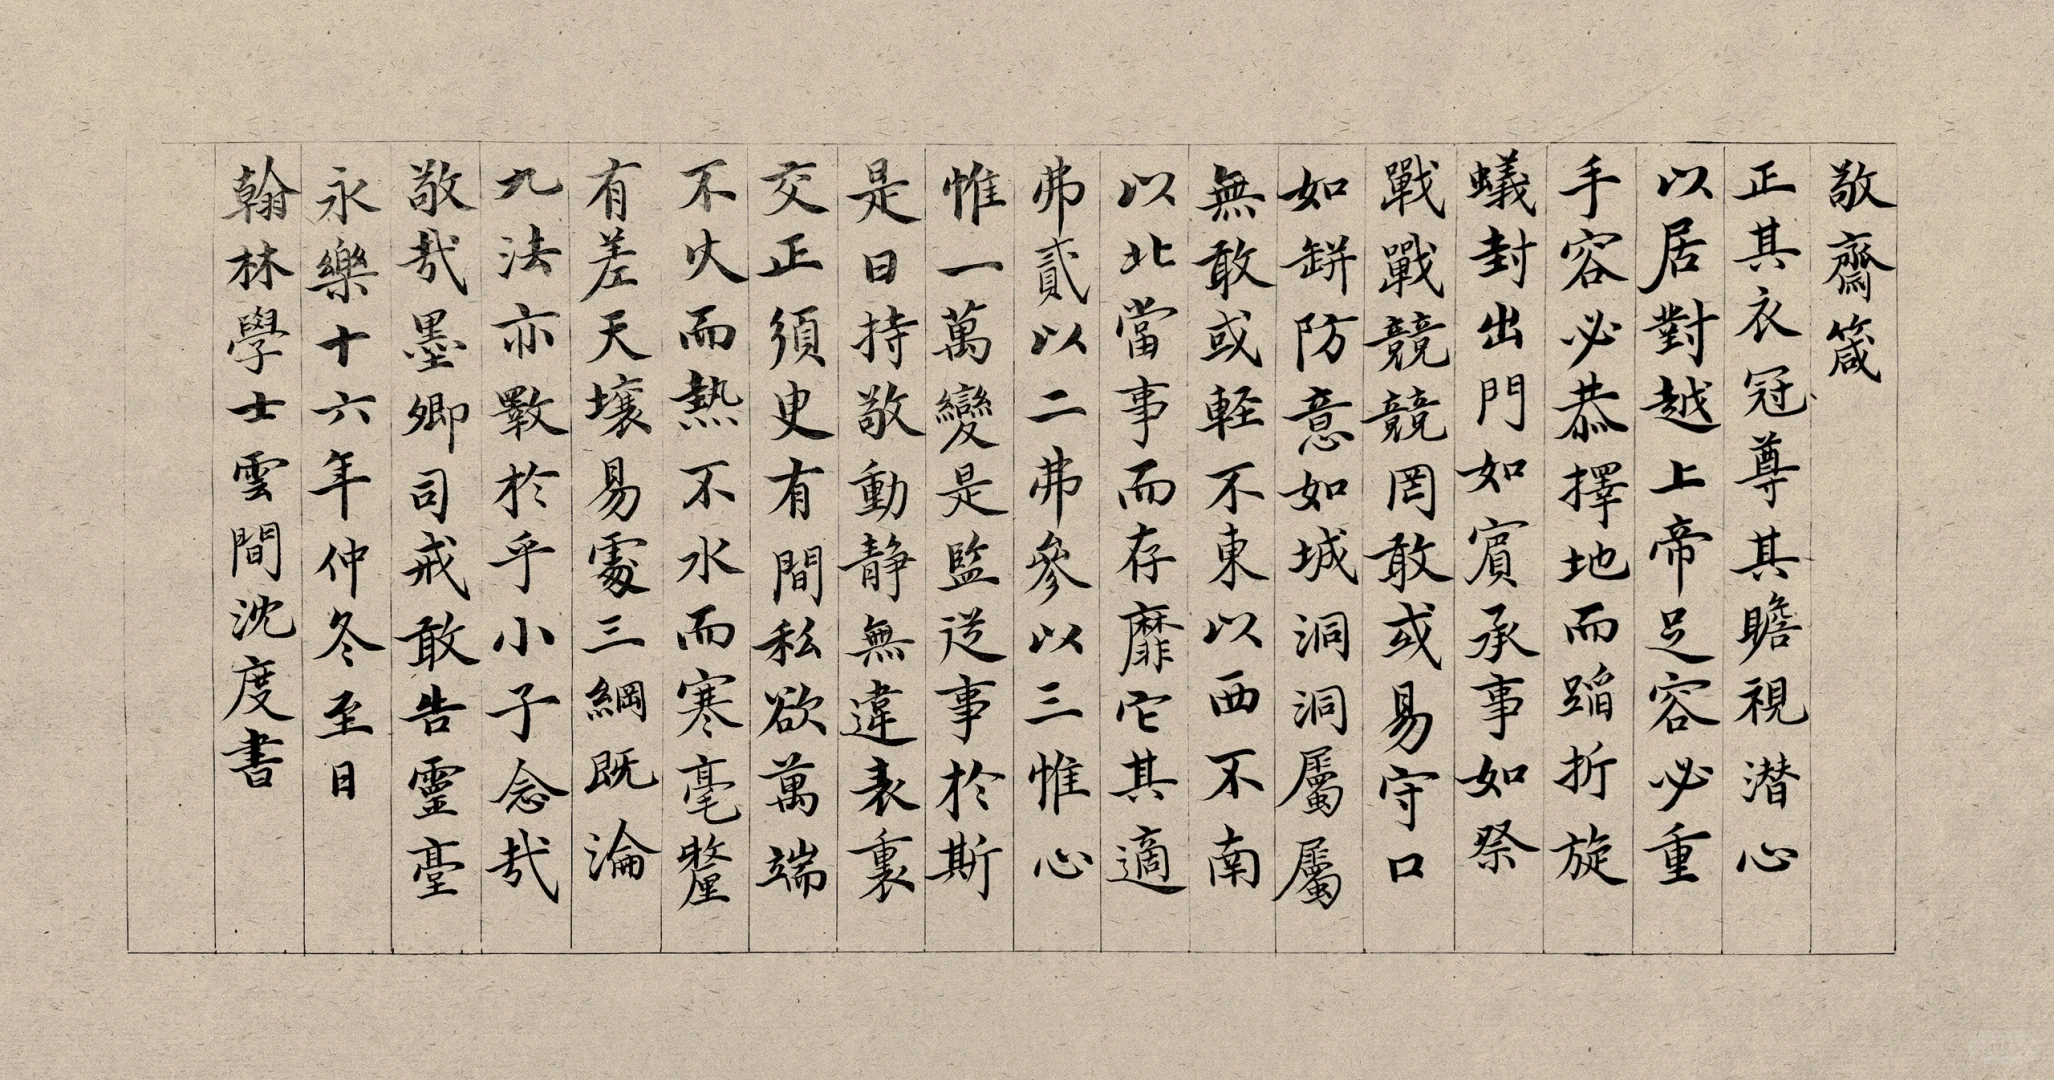 敬齋箴
正其衣冠尊其瞻視潜心
以居對越上帝足容必重
手容必恭擇地而蹈折旋
蟻封出門如賔承事如祭
戰戰兢兢罔敢或易守口
如缾防意如城洞洞屬屬
無敢或軽不東以西不南
以北當事而存靡它其適
弗貳以二弗參以三惟心
惟一萬變是監従事於斯
是日持敬動静無違表裏
交正須史有間私欲萬端
不火而熱不水而寒毫釐
有差天壤易處三綱既淪
九法亦斁於乎小子念哉
敬哉墨卿司戒敢告靈臺
永樂十六年仲冬至日
翰林學士雲間沈度書